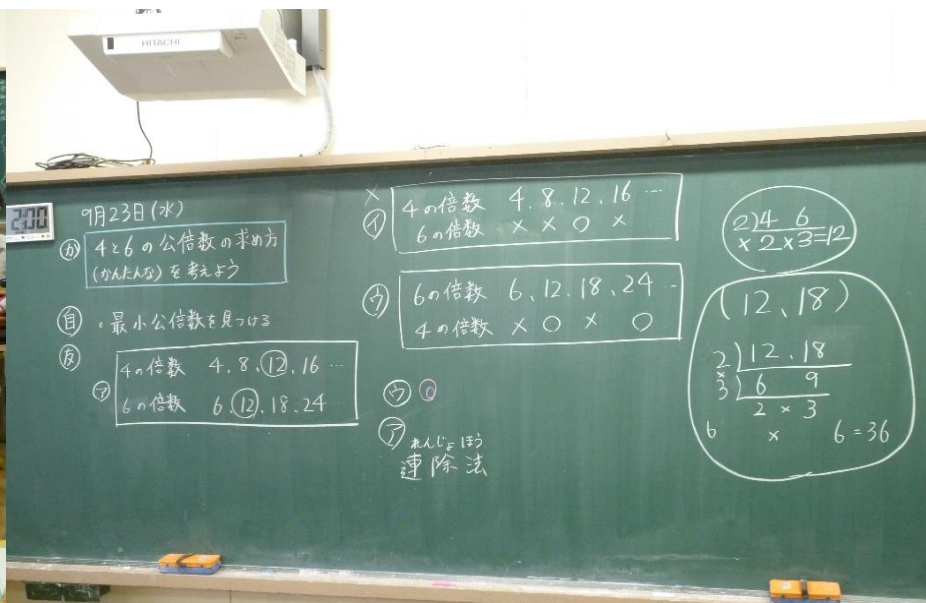 HITACHI
2:00
9月23日(水)
か 4と6の公倍数の求め方
(かんたんな)を考えよう
自 ・最小公倍数を見つける
友
ア 4の倍数 4、8、12、16 …
6の倍数 6、12、18、24
×
イ 4の倍数 4、8、12、16 …
6の倍数 × × ○ ×
ウ 6の倍数 6、12、18、24 …
4の倍数 × ○ × ○
ウ
ア
れんじょほう
連除法
2)4 6
×2×3=12
(12、18)
2)12、18
×
3)6 9
2×3
6 × 6=36